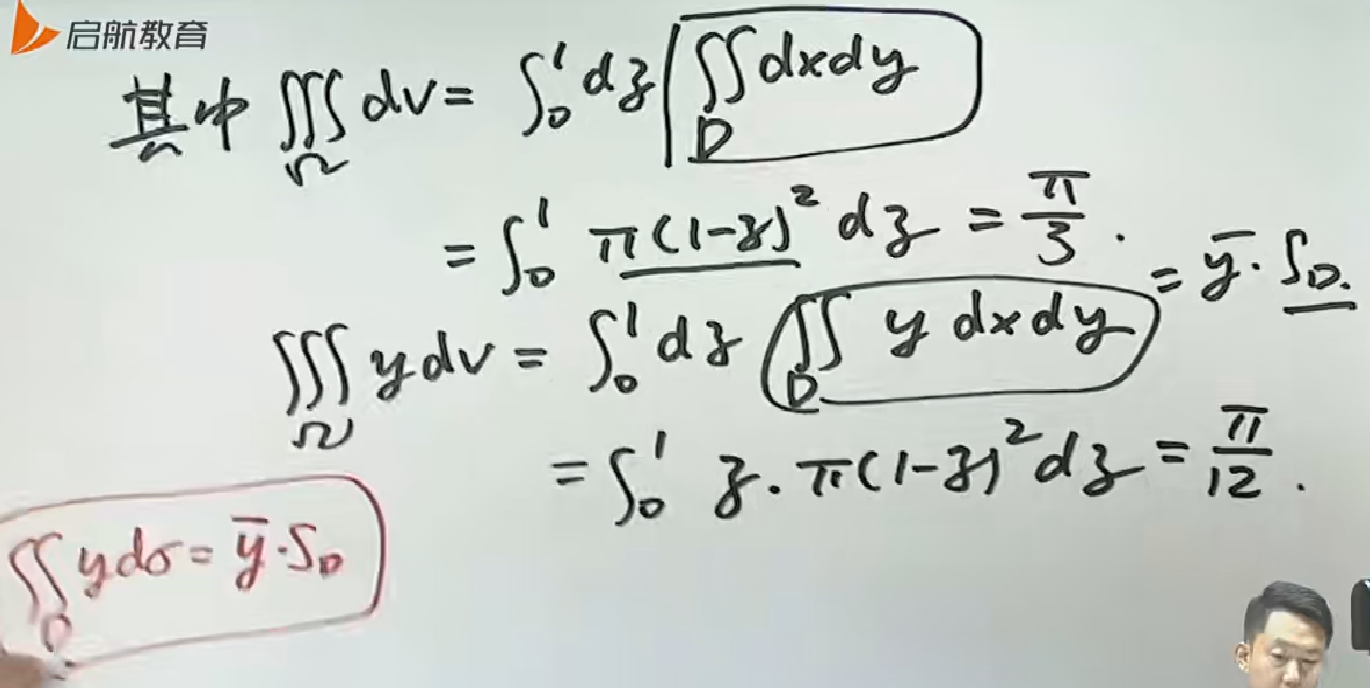 启航教育
其中 ∭_Ω dv = ∫_0^1 dz ∬_D dxdy
= ∫_0^1 π(1-z)^2 dz = π/3.
∭_Ω y dv = ∫_0^1 dz ∬_D y dxdy = ȳ·S_D.
= ∫_0^1 z·π(1-z)^2 dz = π/12.
∬_D y dσ = ȳ·S_D